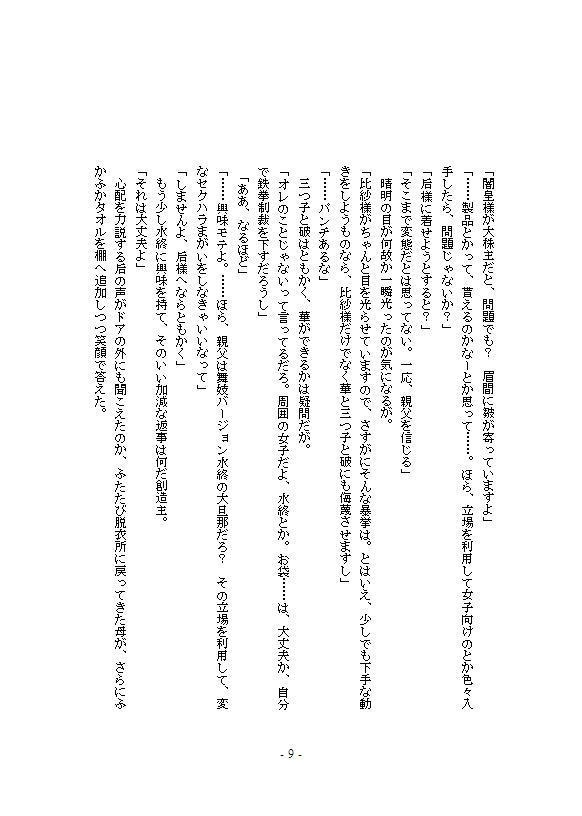 「闇皇様が大株主だと、問題でも？　眉間に皺が寄っていますよ」
「……製品とかって、貰えるのかなーとか思って……。ほら、立場を利用して女子向けのとか色々入
手したら、問題じゃないか？」
「后様に着せようとすると？」
「そこまで変態だとは思ってない。一応、親父を信じる」
　晴明の目が何故か一瞬光ったのが気になるが。
「比紗様がちゃんと目を光らせていますので、さすがにそんな暴挙は。とはいえ、少しでも下手な動
きをしようものなら、比紗様だけでなく華と三つ子と破にも侮蔑させますし」
「……パンチあるな」
　三つ子と破はともかく、華ができるかは疑問だが。
「オレのことじゃないって言ってるだろ。周囲の女子だよ、水終とか。お袋……は、大丈夫か、自分
で鉄拳制裁を下すだろうし」
「ああ、なるほど」
「……興味モテよ。……ほら、親父は舞妓バージョン水終の大旦那だろ？　その立場を利用して、変
なセクハラまがいをしなきゃいいなって」
「しませんよ、后様へならともかく」
　もう少し水終に興味を持て、そのいい加減な返事は何だ創造主。
「それは大丈夫よ」
　心配を力説する后の声がドアの外にも聞こえたのか、ふたたび脱衣所に戻ってきた母が、さらにふ
かふかタオルを棚へ追加しつつ笑顔で答えた。
- 9 -